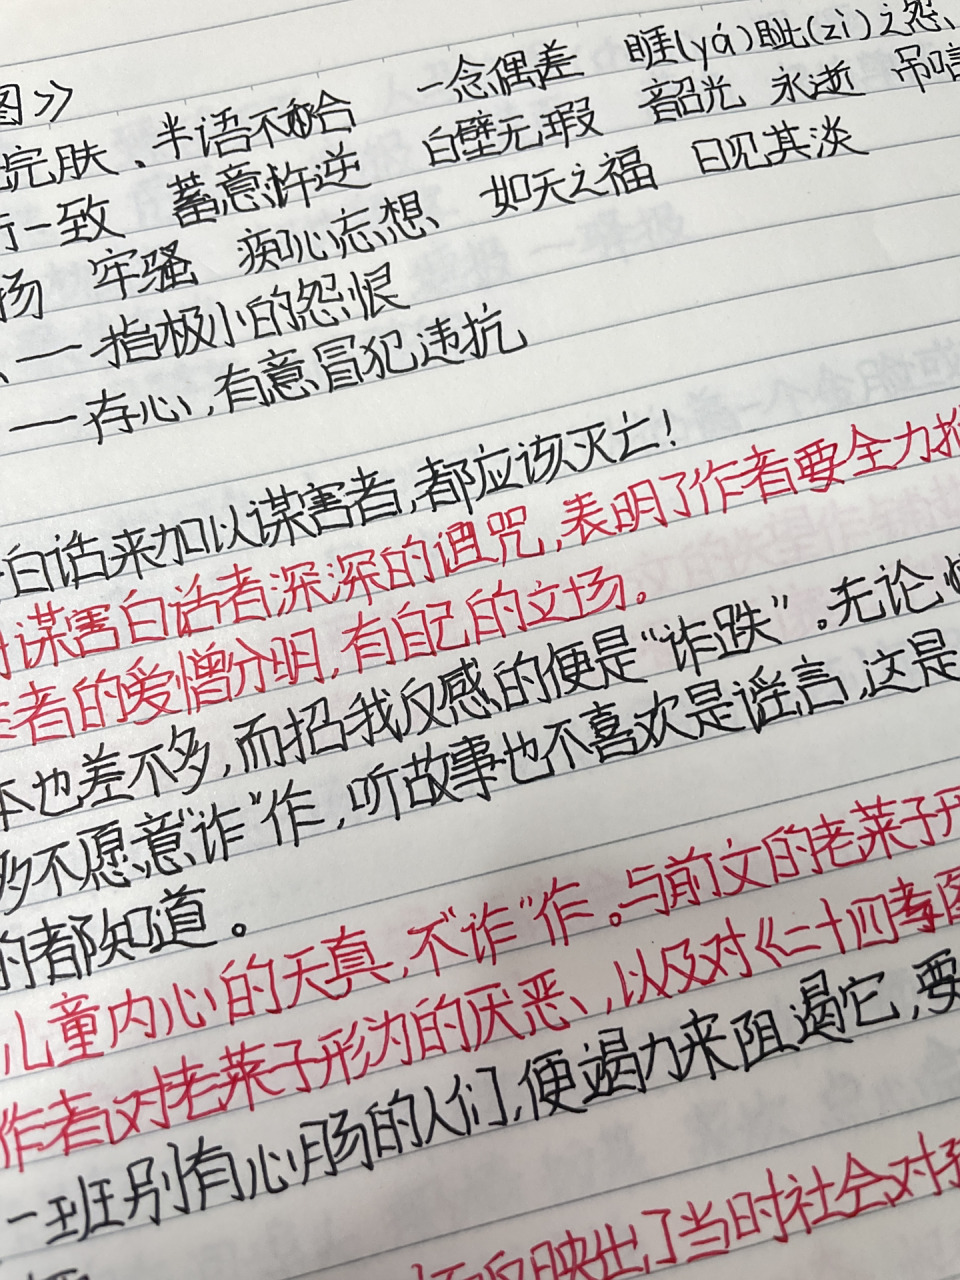 图》
完肤、半语不合 一念偶差 睚(yá)眦(zì)之怨、
行一致 蓄意忤逆 白壁无瑕 韶光 永逝 吊唁
扬 牢骚 痴心忘想、 如天之福 日见其淡
——指极小的怨恨
——存心,有意冒犯违抗
白话来加以谋害者,都应该灭亡!
谋害白话者深深的诅咒,表明了作者要全力
者的爱憎分明,有自己的立场。
本也差不多,而招我反感的便是“诈跌”。无论
多不愿意“诈”作,听故事也不喜欢是谣言,这是
的都知道。
儿童内心的天真,不“诈”作。与前文的老莱子
作者对老莱子形为的厌恶、,以及对《二十四孝图
一班别有心肠的人们,便竭力来阻遏它,要
反映出了当时社会对